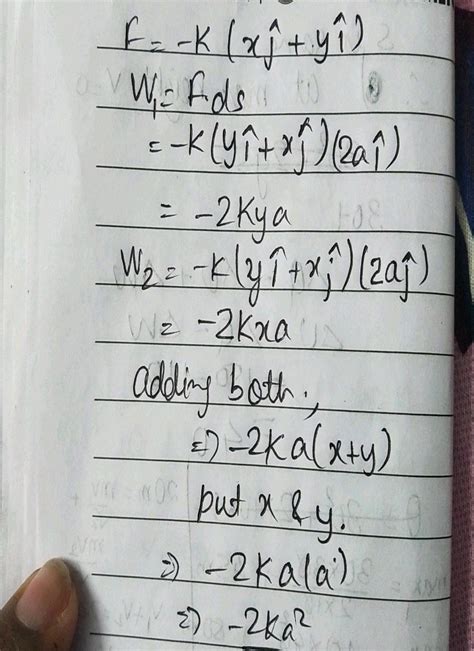 F = -K (xĵ + yî)
W₁ = F.ds
= -K(yî + xĵ)(2aî)
= -2Kya
W₂ = -K(yî + xĵ)(2aĵ)
= -2Kxa
adding both,
⇒ -2Ka(x+y)
put x & y.
⇒ -2Ka(a)
⇒ -2Ka²